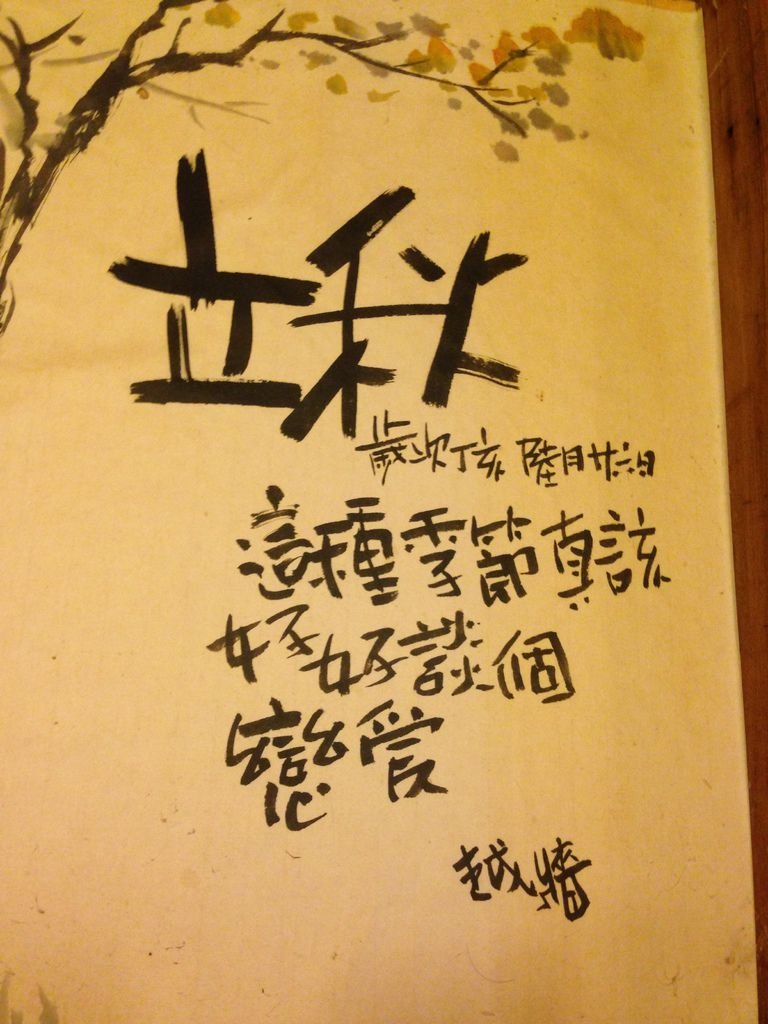 立秋
歲次丁亥 陸月廿六日
這種季節真該
好好談個
戀愛
越牆